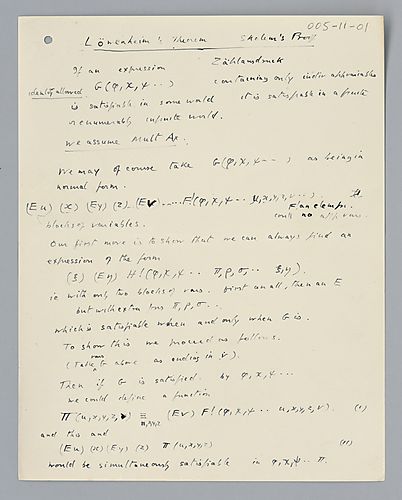 005-11-01
Löwenheim's Theorem Skolem's Proof
If an expression Zählausdruck
identity allowed G(φ, χ, ψ ···) containing only indiv apparent vbles
is satisfiable in some world it is satisfiable in a finite
or enumerably infinite world.
We assume Mult Ax.
We may of course take G(φ, χ, ψ ···) as being in
normal form.
(Eu) (x) (Ey) (z) (Ev) ..... F!(φ, χ, ψ ··· u, x, y, z, v ··)
blocks of variables. could no app. vars.
Our first move is to show that we can always find an
expression of the form
(ξ) (Eη) H!(φ, χ, ψ ·· Π, ρ, σ, ·· ξ, η).
ie with only two blocks of vars. first an all, then an E
but with extra fns Π, ρ, σ ··
which is satisfiable when and only when G is.
To show this we proceed as follows.
(Take G above as ending in V).
Then if G is satisfied by φ, χ, ψ ···
we could define a function
Π (u, x, y, z) ≡ (Ev) F!(φ, χ, ψ ··· u, x, y, z, v). (i)
and this and
(Eu) (x) (Ey) (z) Π (u, x, y, z) (ii)
would be simultaneously satisfiable in φ, χ, ψ ·· Π.